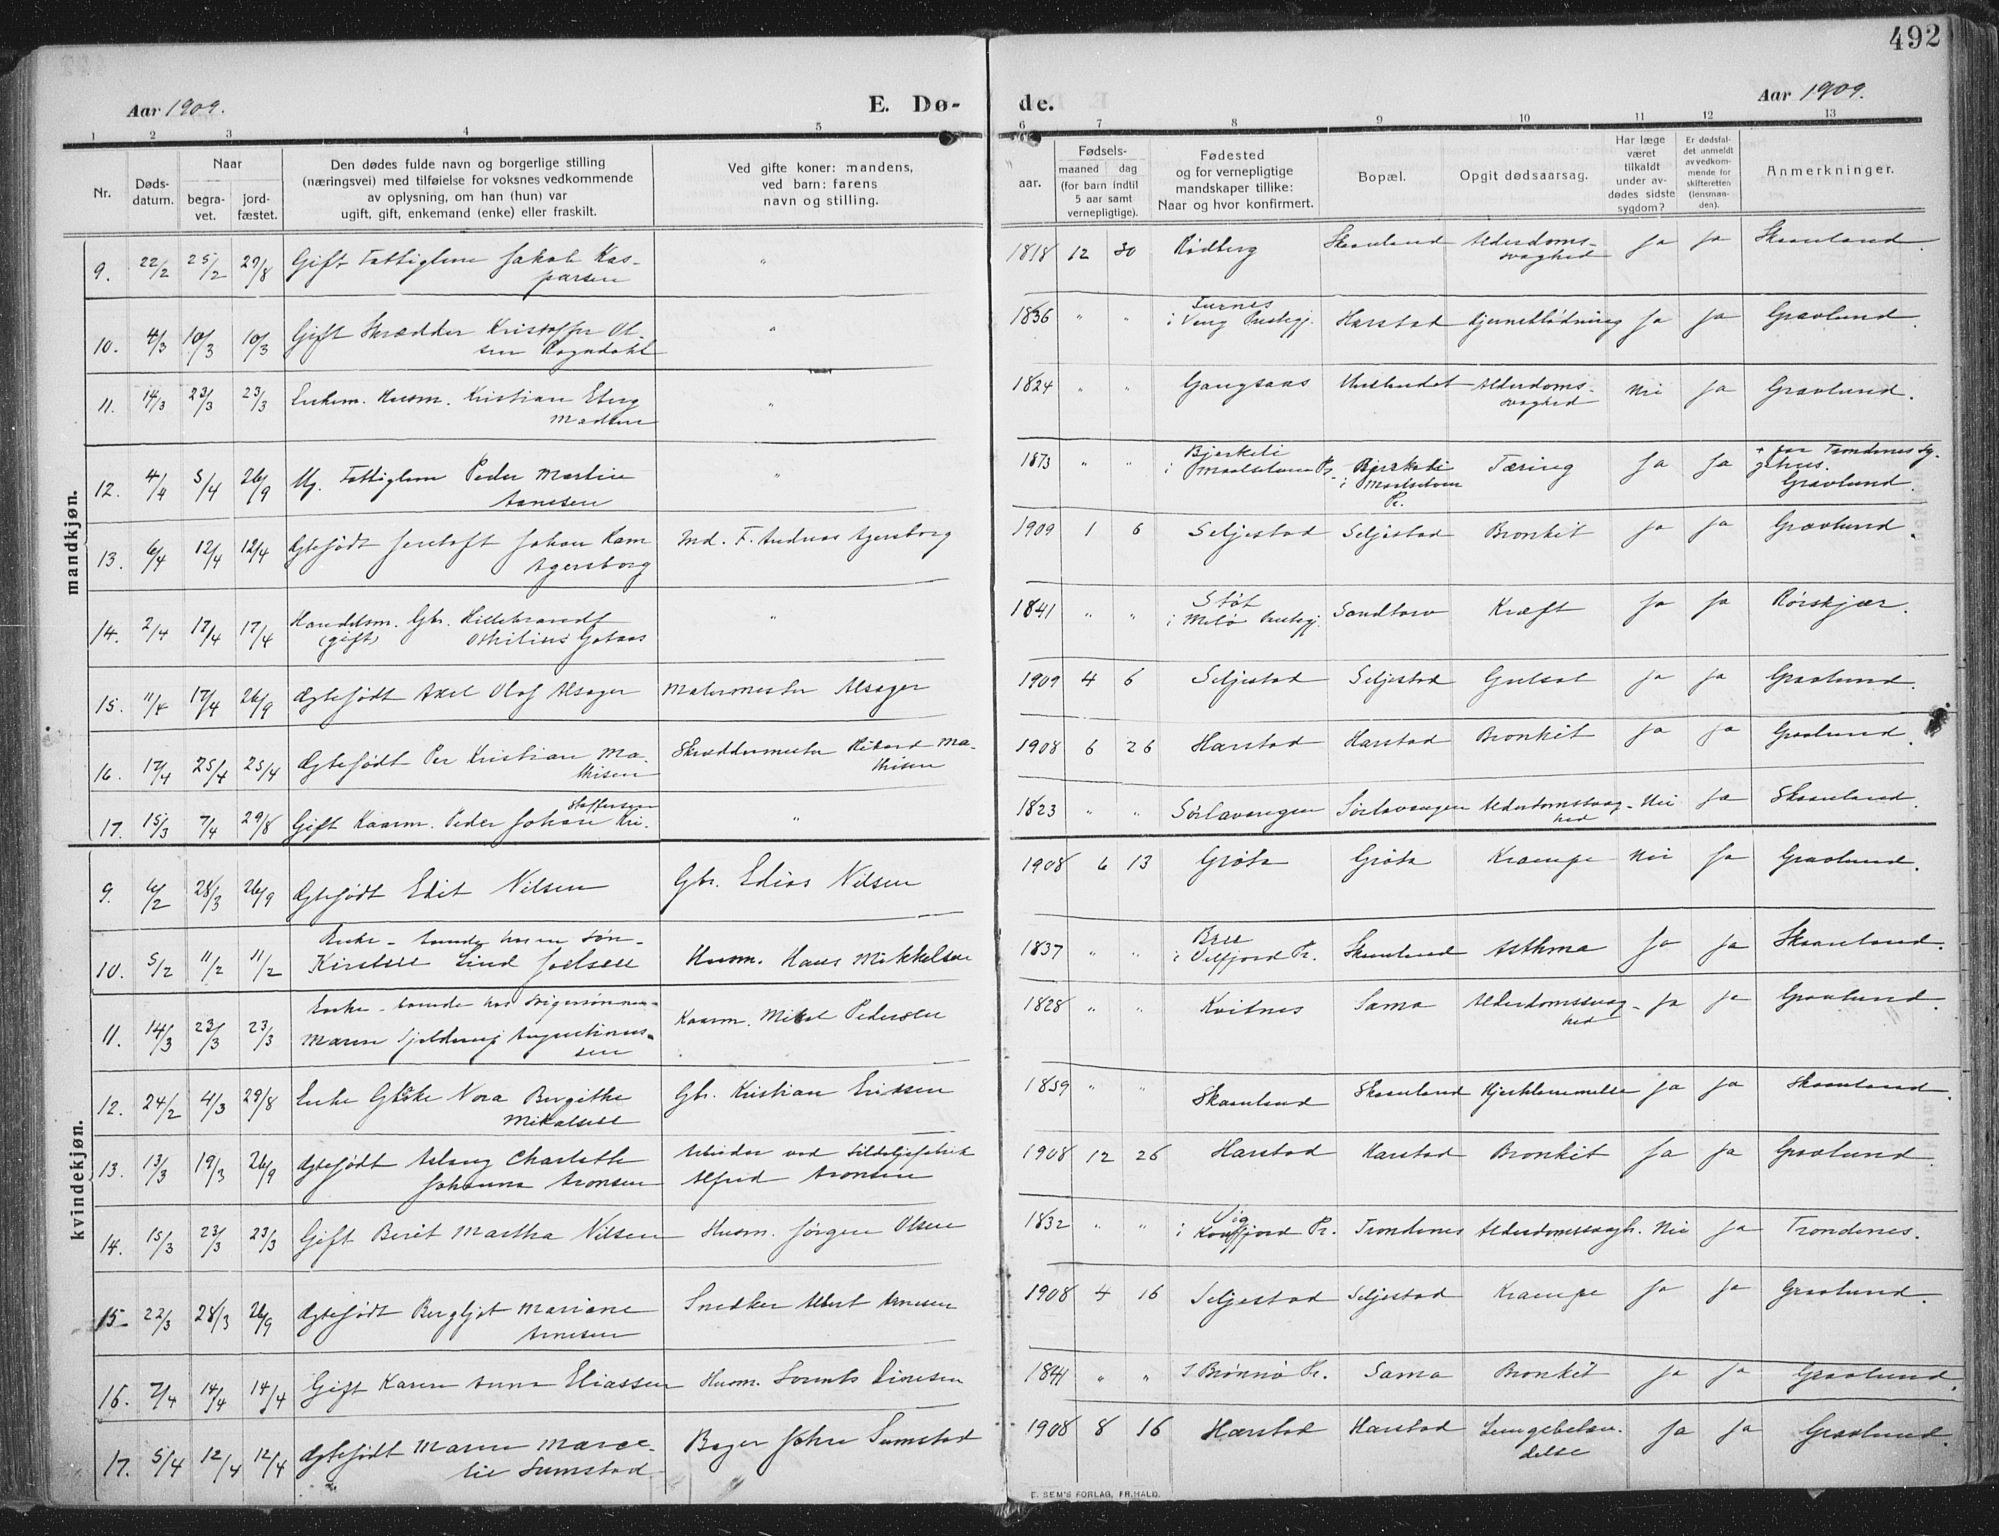 492
Aar 1909.
E. Dø-
de.
Aar 1909.
1 2 3 4 5 6 7 8 9 10 11 12 13
Nr.
Døds-
datum.
Naar
begra-
vet.
jord-
fæstet.
Den dødes fulde navn og borgerlige stilling
(næringsvei) med tilføielse for voksnes vedkommende
av oplysning, om han (hun) var
ugift, gift, enkemand (enke) eller fraskilt.
Ved gifte koner: mandens,
ved barn: farens
navn og stilling.
aar.
Fødsels-
maaned dag
(for barn indtil
5 aar samt
vernepligtige).
Fødested
og for vernepligtige
mandskaper tillike:
Naar og hvor konfirmert.
Bopæl.
Opgit dødsaarsag.
Har læge
været
tilkaldt
under av-
dødes sidste
sygdom?
Er dødsfal-
det anmeldt
av vedkom-
mende for
skifteretten
(lensman-
den).
Anmerkninger.
mandkjøn.
9. 22/2 25/2 29/8 Gift Fattiglem Jakob Kas-
parsen " 1818 12 30 Rødberg Skaanland Alderdoms-
svaghed Ja Ja Skaanland.
10. 4/3 10/3 10/3 Gift Skrædder Kristoffer Ol-
sen Rogndahl " 1836 " " i Veng Prestegj. Harstad Hjerneblødning Ja Ja Gravlund.
11. 14/3 23/3 23/3 Enkem. Husm. Kristian Eberg
Madsen " 1824 " " Gangsaas Alderdoms-
svaghed Nei Ja Gravlund.
12. 4/4 5/4 26/9 Ug. Fattiglem Peder Martin
Arnesen " 1873 " " Bjerkeli
i Maalselven Pr. Bjerkeli
i Maalselven
Pr. Tæring Ja Ja + paa Trondenes Sy-
gehus.
Gravlund.
13. 6/4 12/4 12/4 Ægtefødt Jentoft Johan Ram
Agersborg Md. F. Andreas Agersborg 1909 1 6 Seljestad Seljestad Bronkit Ja Ja Gravlund.
14. 2/4 17/4 17/4 Handelsm. Gbr. Hillebrandt
(gift) Othilius Gotaas " 1841 " " Støt
i Melø Prestegj. Sandtorv Kræft Ja Ja Rørskjær.
15. 11/4 17/4 26/9 Ægtefødt Axel Olaf Alsager Malermester Alsager 1909 4 6 Seljestad Seljestad Gulsot Ja Ja Gravlund.
16. 17/4 25/4 25/4 Ægtefødt Per Kristian Ma-
thisen Skræddermester Rikard Ma-
thisen 1908 6 26 Harstad Harstad Bronkit Ja Ja Gravlund.
17. 15/3 7/4 29/8 Gift Kaarm. Peder Johan Kri-
stoffersen " 1823 " " Sørlavangen Sørlavangen Alderdomssvag-
hed Nei Ja Skaanland.
kvindekjøn.
9. 6/2 28/3 26/9 Ægtefødt Edit Nilsen Gbr. Edias Nilsen 1908 6 13 Grøta Grøta Krampe Nei Ja Gravlund.
10. 5/2 11/2 11/2 Enke - boende hos en søn-
Kirsten Lind Joelsen Husm. Hans Mikkelsen 1837 " " i Velfjord Pr. Skaanland Asthma Ja Ja Skaanland.
11. 14/3 23/3 23/3 Enke - boende hos svigersønnen-
Maren Hjeldrup Augustinus-
sen Kaarm. Mikal Pedersen 1828 " " Kvitnes Sama Alderdomssvag-
hed Ja Ja Gravlund.
12. 24/2 4/3 29/8 Enke Nora Bergithe
Mikalsen Gbr. Kristian Eriksen 1859 " " Skaanland Skaanland Hjertelammelse Ja Ja Skaanland.
13. 13/3 19/3 26/9 Ægtefødt Aslaug Charlotte
Johanna Aronsen Arbeider ved Sildoljefabrik
Alfred Aronsen 1908 12 26 Harstad Harstad Bronkit Ja Ja Gravlund.
14. 15/3 23/3 23/3 Gift Berit Martha Nilsen Husm. Jørgen Olsen 1832 " " Vig
i Kvæfjord Pr. Trondenes Alderdomssvagh. Nei Ja Trondenes.
15 22/3 28/3 26/9 Ægtefødt Bergljot Mariane
Arnesen Snedker Albert Arnesen 1908 4 16 Seljestad Seljestad Krampe Ja Ja Gravlund.
16. 7/4 14/4 14/4 Gift Karen Anna Eliassen Husm. 1841 " " I Brønnø Pr. Sama Bronkit Ja Ja Gravlund.
17. 5/4 12/4 12/4 Ægtefødt Maren Marce-
lie Sumstad Bager Johan Sumstad 1908 8 16 Harstad Harstad Lungebetæn-
delse Ja Ja Gravlund.
E. SEM'S FORLAG, FR.HALD.